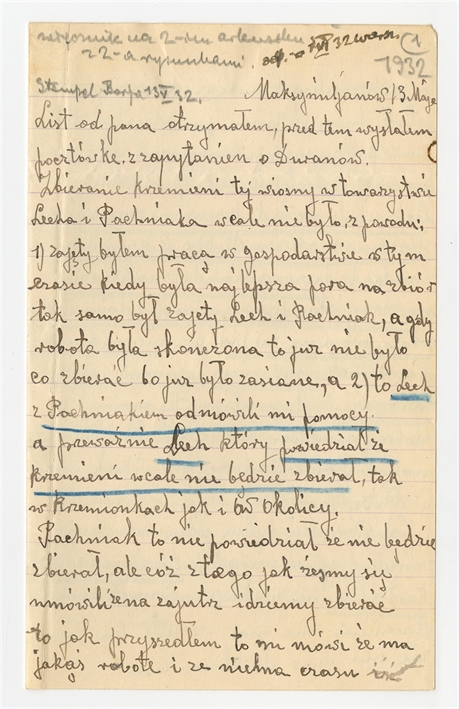 na 2-im arkuszu
z 2-a rysunkami. 32
1
1932
Stempel 13 V 32.
Maksymiljanów 13 Maje
List od pana otrzymałem, przed tem wysłałem
pocztówke, z zapytanien o Duranów.
Zbieranie krzemieni tej wiosny w towarzystwie
Lecha i Pachniaka wcale nie było, z powodu:
1) zajęty byłem pracą w gospodarstwie w tym
czasie kiedy była najlepsza pora na zbiór
tak samo był zajęty Lech i Pachniak, a gdy
robota była skonczona to jur nie było
co zbierać bo jur było zasiane, a 2) to Lech
z Pachniakiem odmówili mi pomocy.
a przeważnie Lech który powiedział że
krzemieni wcale nie będzie zbierał, tak
w Krzemionkach jak i w Okolicy.
Pachniak to nie powiedział że nie będzie
zbierał, ale cóż z tego jak żeśmy się
umówili że na zajutrz idziemy zbierać
to jak przyszedłem to mi mówi że ma
jakąś robote i ze niema czasu iść